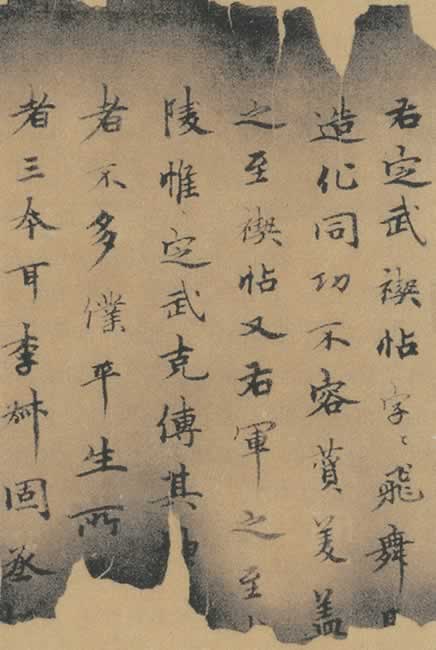 右定武禊帖字〻飛舞
造化同功不容贊美蓋
之至禊帖又右軍之至
陵惟〻定武克傳其
者不多僕平生所
者三本耳李叔固丞